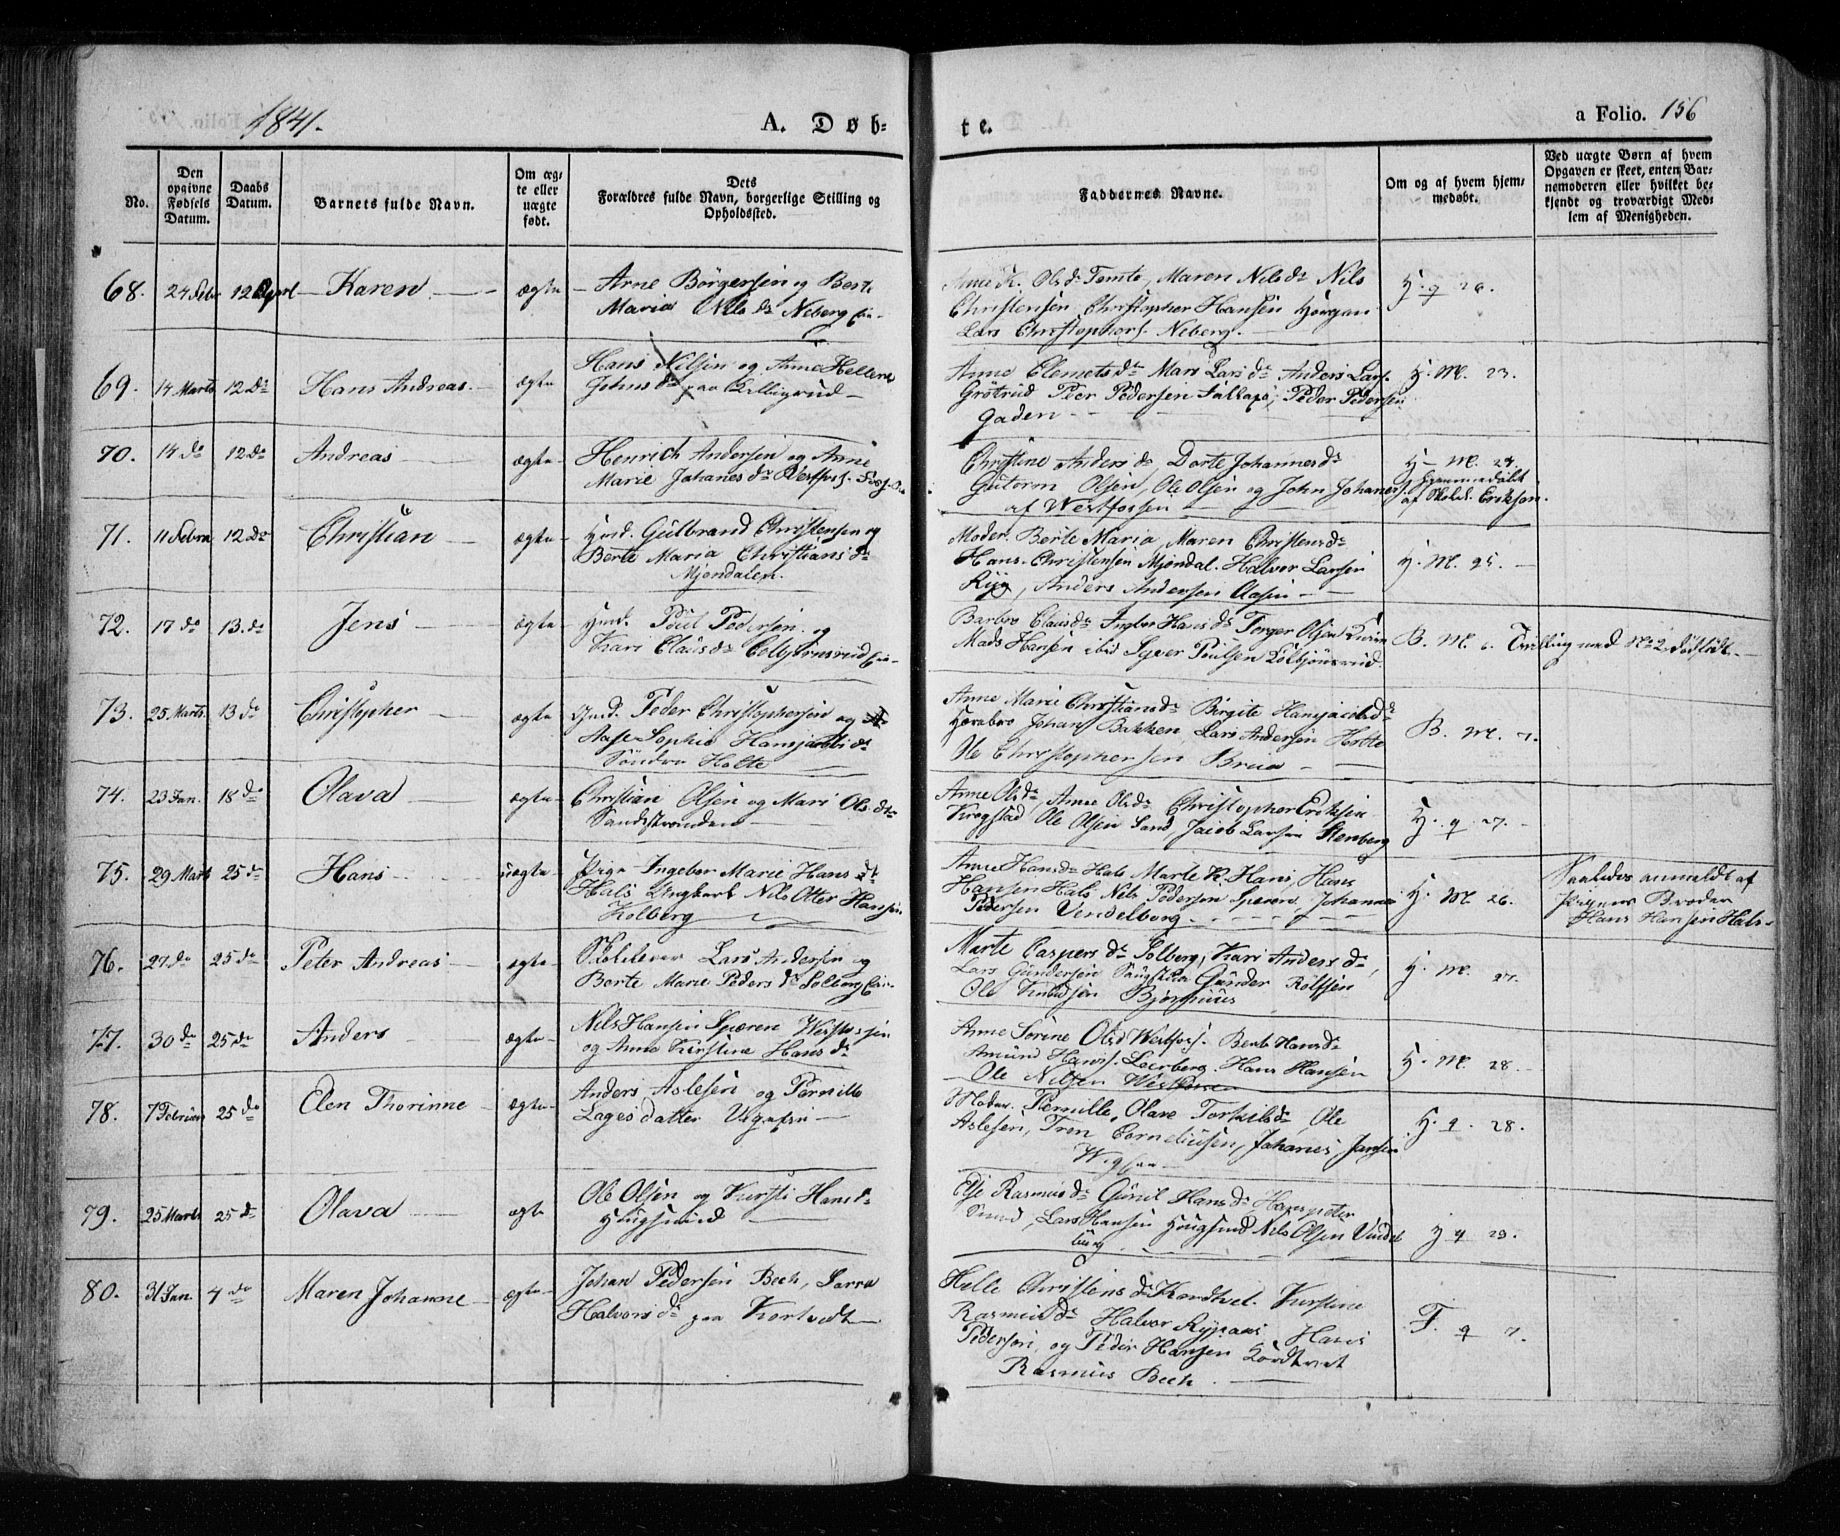 1841.
A. Døb-
te.
a Folio. 156
No.
Den opgivne Fødsels Datum.
Daabs Datum.
Barnets fulde Navn.
Om ægte eller uægte født.
Dets Forældres fulde Navn, borgerlige Stilling og Opholdssted.
Faddernes Navne.
Om og af hvem hjemmedøbt.
Ved uægte Børn af hvem Opgaven er skeet, enten Barnemoderen eller hvilket bekjendt og troværdigt Medlem af Menigheden.
68. 24 Febr 12 April Karen ægte Arne Börgersen og Berte
Maria Nils dr Neberg
Anne K. Olsdr Tomte, Maren Nilsdr Nils
Christensen, Christopher Hansen Horgan
Lars Christophers. Neberg.
H. q 26.
69. 14 Marts 12 do Hans Andreas ægte Hans Nilsen og Anne Hellene
Johns dr paa
Anne Clemets dr Mari Lars dr Anders Lars.
Grötrud Peer Pedersen Peder Pedersen
Gaden
H. M. 23.
70. 14 do 12 do Andreas ægte Henrich Andersen og Anne
Marie Johanes dr Westfoss.
Christine Anders dr, Dorte Johannes dr
Gutorm Olsen, Ole Olsen og John Johanes.
af Westfossen
H. M. 24.
hjemmedöbt
af Skolel. Erikson.
71. 11 Febru 12 do Christian ægte Hmd. Gulbrand Christensen og
Berte Maria Christians dr
Mjøndalen.
Moder. Berte Maria, Maren Christens dr
Hans Christensen Mjøndal. Halvor Larsen
Ryg, Anders Andersen Aasen
H. M. 25.
72. 17 do 13. do Jens ægte Hmd. Poul Pedersen og
Kari Claus dr Colbjørnsrud
Barbro Clausdr Ingbor Hans dr Torger Olsen
Mads Hansen ibid Syver Poulsen Kolbjönsrud
B. M. 6. Tvilling med No 2. dødfødt
73. 25 Marts 13 do Christopher ægte Gmd. Peder Christophersen og
Aase Sophie Hansjacobs dr
Söndre Holte
Anne Marie Christians dr Birgite Hansjacobsdr
Horabro Johan Bakken, Lars Andersen Holte
Ole Christophersen Brua
B. M. 7.
74. 23 Jan. 18 do Olava ægte Christian Olsen og Mari Ols dtr
Sandstranden
Anne Olsdr, Anne Olsdr Christopher Eriksen
Krogstad Ole Olsen Sand, Jacob Larsen Stenberg
H. q 27.
75. 29 Mart 25 do Hans uægte Pige Ingebor Marie Hans dt
Hals Ungkarl Nils Otter Hansen
Kolberg
Anne Hansdr Hals Marte K. Hans, Hans
Hansen Hals Nils Pedersen Speren Johannes
Pedersen Vendelborg
H. M. 26.
Saaledes anmeldt af
Pigens Broder
Hans Hansen Hals
76. 27 do 25 do Peter Andreas ægte Skolelærer Lars Andersen og
Berte Marie Peders dr Solberg
Marte Caspers dr Solberg, Kari Anders dr,
Lars Gundersen Gunder Rolfsen
Ole Knudsen
H. M. 27.
77. 30 do 25 do Anders ægte Nils Hansen Speren Westfossen
og Anne Kirstine Hans dr
Anne Sorine Olsd Westfoss. Berte Hansdr
Amund Hans. Leerberg. Hans Hansen
Ole Nilsen Westfossen
H. M. 28.
78. 7 Februar 25 do Elen Thorinne ægte Anders Aslesen og Pernille
Lages datter
Moder. Pernille, Olave Torkilsdr, Ole
Aslesen, Tron Corneliusen, Johanes Jansen
H. q. 28.
79. 25 Marts 25 do Olava ægte Ole Olsen og Kirsti Hansd.
Hougsund
Else Rasmus dr Gunil Hans dr Hanspeter
Smud, Lars Hansen Hougsund Nils Olsen Vendel
borg
H q 29.
80. 31 Jan. 4 do Maren Johanne ægte Johan Pedersen Bech, Sara
Halvors dr paa Kortvedt
Helle Christens dr Kordtvet. Kirstine
Rasmusdr Halvor Rypaas Hans
Pedersen, og Peder Hansen Kordtvet
Rasmus Bech.
F. q 7.